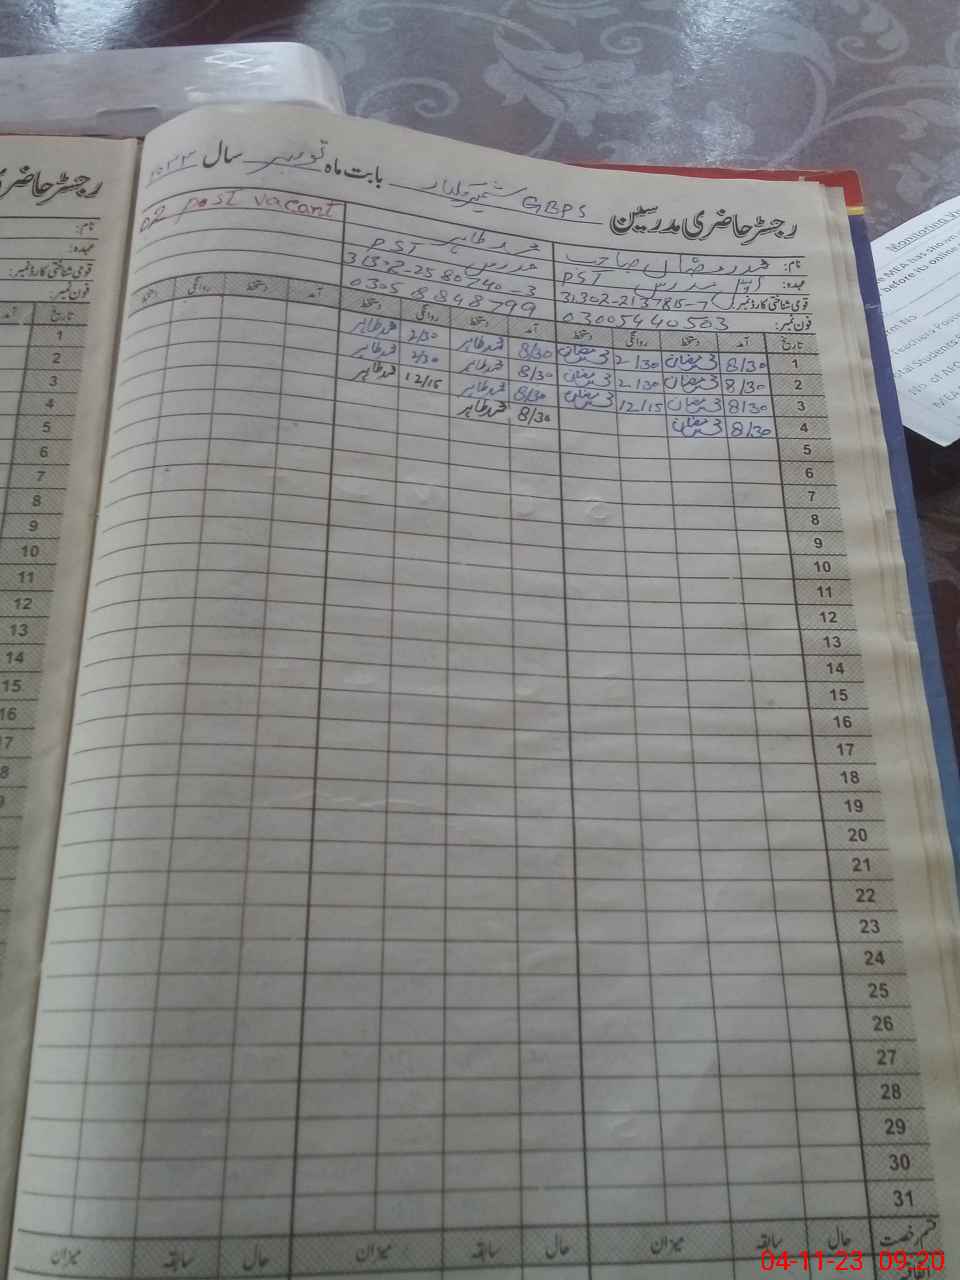 رجسٹر حاضری مدرسین GBPS بابت ماہ نومبر سال ۲۰۲۳
02 post vacant
نام: محمد رمضان صاحب
محمد طاہر
عہدہ: مدرس PST
مدرس PST
قومی شناختی کارڈ نمبر: 31302-2137815-7
31302-2580740-3
فون نمبر: 03005440503
03058848799
تاریخ آمد دستخط روانگی دستخط آمد دستخط روانگی دستخط آمد دستخط روانگی دستخط
1 8/30 محمد رمضان 2/30 محمد رمضان 8/30 محمد طاہر 2/30 محمد طاہر
2 8/30 محمد رمضان 2/30 محمد رمضان 8/30 محمد طاہر 2/30 محمد طاہر
3 8/30 محمد رمضان 12/15 محمد رمضان 8/30 محمد طاہر 12/15 محمد طاہر
4 8/30 محمد رمضان 8/30 محمد طاہر
5
6
7
8
9
10
11
12
13
14
15
16
17
18
19
20
21
22
23
24
25
26
27
28
29
30
31
قسم رخصت حال سابقہ میزان حال سابقہ میزان حال سابقہ میزان
رجسٹر حاضری
نام:
عہدہ:
قومی شناختی کارڈ نمبر:
فون نمبر:
تاریخ آمد
1
2
3
4
5
6
7
8
9
10
11
12
13
14
15
16
Monitoring
MEA has shown
before its online
04-11-23 09:20